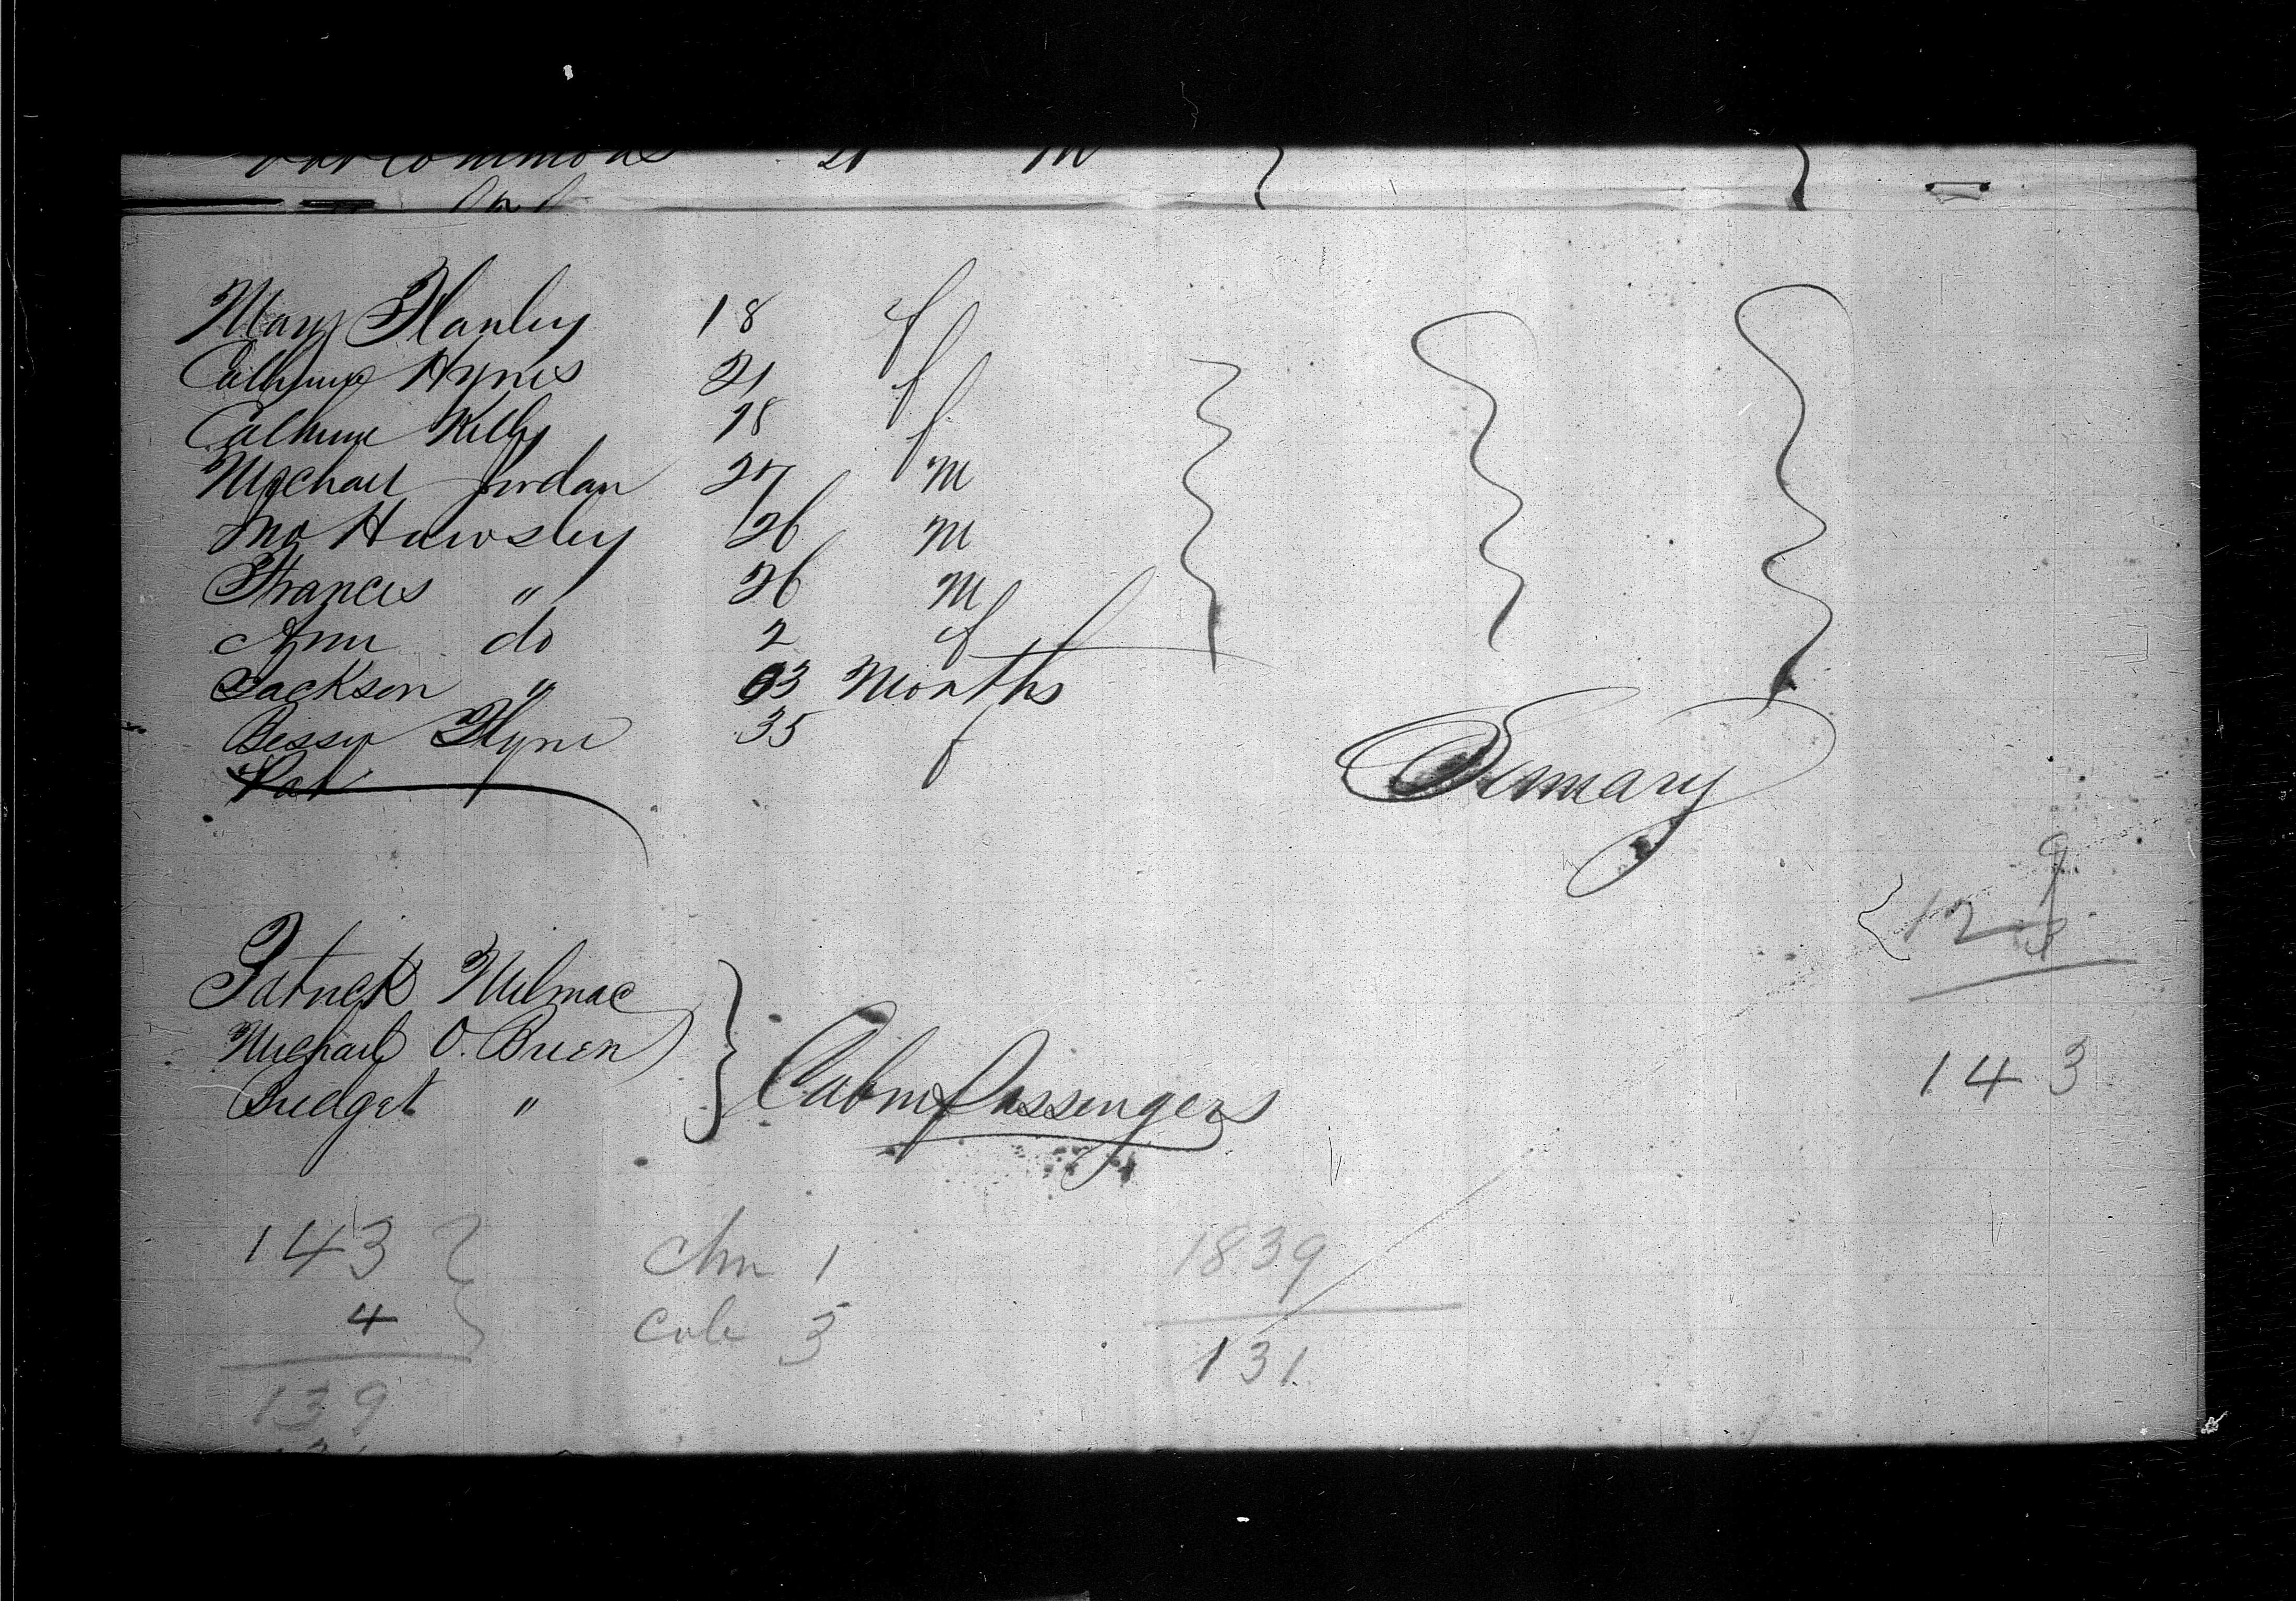 Commons 21 m
Mary Hanley 18 f
Catherine Hynes 21 f
Catherine Kelly 18 f
Michael Jordan 27 M
Jno Hawsley 26 M
Francis " 26 M
Ann do 2 f
Jackson " 03 Months
Bessy Flynn 35 f
Pat
Sumary
9
12
143
Patrick
Michael O. Brien
Bridget "
Cabin Passengers
143 chn 1 1839
4 cab 3
139 131